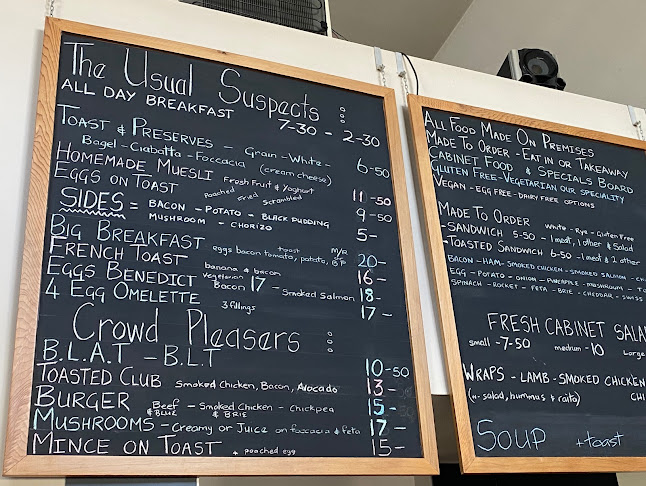 The Usual Suspects :
ALL DAY BREAKFAST 7-30 - 2-30
TOAST & PRESERVES - Grain - White -
Bagel - Ciabatta - Foccacia (cream cheese) 6-50
HOMEMADE MUESLI Fresh Fruit & Yoghurt 11-50
EGGS ON TOAST poached fried scrambled 9-50
SIDES = BACON - POTATO - BLACK PUDDING
MUSHROOM - CHORIZO 5-
BIG BREAKFAST eggs bacon tomato, toast, potato, M/R B.P 20-
FRENCH TOAST banana & bacon 16-
EGGS BENEDICT Vegetarian Bacon 17 - Smoked Salmon 18-
4 EGG OMELETTE 3 fillings 17-
Crowd Pleasers :
B.L.A.T - B.L.T 10-50
TOASTED CLUB Smoked Chicken, Bacon, Avocado 13-
BURGER Beef & BLUE - Smoked Chicken & BRIE - Chickpea 15-
MUSHROOMS - Creamy or Juice on foccacia & feta 17-
MINCE ON TOAST + poached egg 15-
ALL FOOD MADE ON PREMISES
MADE TO ORDER - EAT IN OR TAKEAWAY
CABINET FOOD & SPECIALS BOARD
GLUTEN FREE - VEGETARIAN OUR SPECIALITY
VEGAN - EGG FREE - DAIRY FREE OPTIONS
MADE TO ORDER White - Rye - Gluten Free
- SANDWICH 5-50 - 1 meat, 1 other & salad
- TOASTED SANDWICH 6-50 - 1 meat & 2 other
BACON - HAM - SMOKED CHICKEN - SMOKED SALMON - CH
EGG - POTATO - ONION - PINEAPPLE - MUSHROOM - TO
SPINACH - ROCKET - FETA - BRIE - CHEDDAR - SWISS
FRESH CABINET SALA
small - 7-50 medium - 10 Large
WRAPS - LAMB - SMOKED CHICKEN
(w- salad, hummus & raita) CHI
SOUP + toast